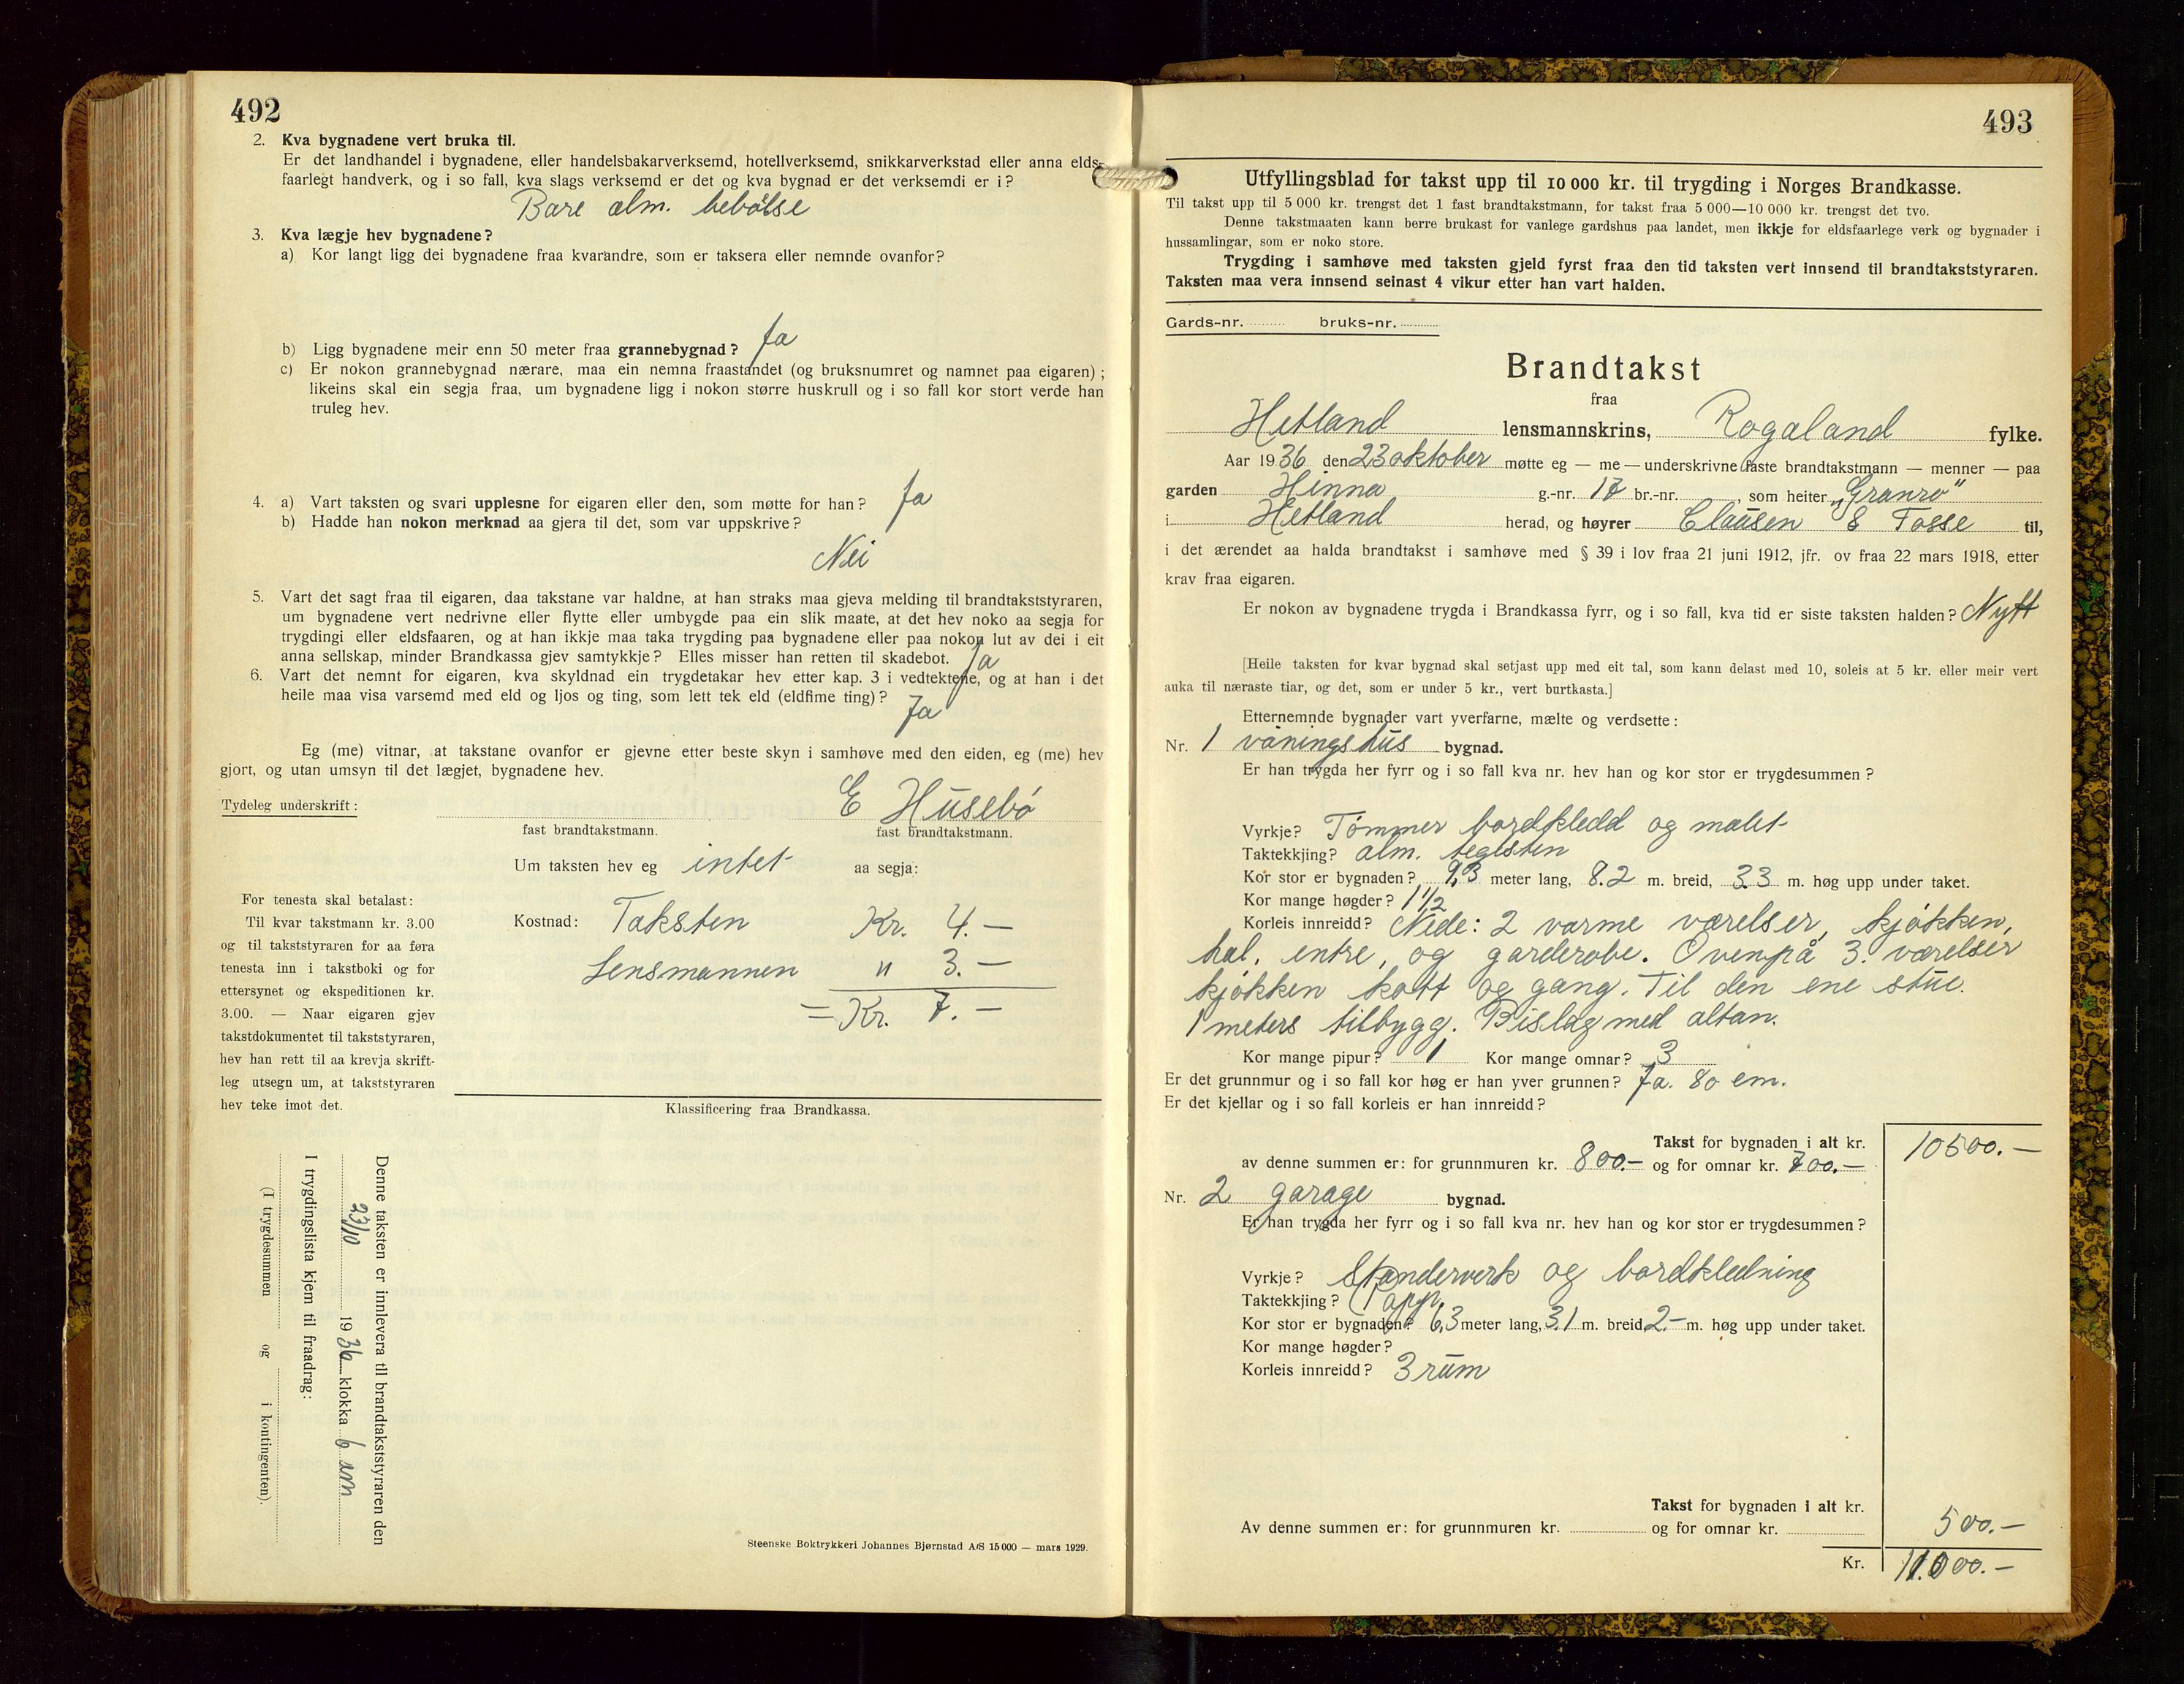 492
2. Kva bygnadene vert bruka til.
Er det landhandel i bygnadene, eller handelsbakarverksemd, hotellverksemd, snikkarverkstad eller anna elds-
faarlegt handverk, og i so fall, kva slags verksemd er det og kva bygnad er det verksemdi er i?
Bare alm. bebølse
3. Kva lægje hev bygnadene?
a) Kor langt ligg dei bygnadene fraa kvarandre, som er taksera eller nemnde ovanfor?
b) Ligg bygnadene meir enn 50 meter fraa grannebygnad? Ja
c) Er nokon grannebygnad nærare, maa ein nemna fraastandet (og bruksnumret og namnet paa eigaren);
likeins skal ein segja fraa, um bygnadene ligg i nokon større huskrull og i so fall kor stort verde han
truleg hev.
4. a) Vart taksten og svari upplesne for eigaren eller den, som møtte for han? Ja
b) Hadde han nokon merknad aa gjera til det, som var uppskrive?
Nei
5. Vart det sagt fraa til eigaren, daa takstane var haldne, at han straks maa gjeva melding til brandtakststyraren,
um bygnadene vert nedrivne eller flytte eller umbygde paa ein slik maate, at det hev noko aa segja for
trygdingi eller eldsfaaren, og at han ikkje maa taka trygding paa bygnadene eller paa nokon lut av dei i eit
anna sellskap, minder Brandkassa gjev samtykkje? Elles misser han retten til skadebot. Ja
6. Vart det nemnt for eigaren, kva skyldnad ein trygdetakar hev etter kap. 3 i vedtektene, og at han i det
heile maa visa varsemd med eld og ljos og ting, som lett tek eld (eldfime ting)? Ja
Eg (me) vitnar, at takstane ovanfor er gjevne etter beste skyn i samhøve med den eiden, eg (me) hev
gjort, og utan umsyn til det lægjet, bygnadene hev.
Tydeleg underskrift: E Husebø
fast brandtakstmann. fast brandtakstmann.
Um taksten hev eg intet aa segja:
For tenesta skal betalast:
Til kvar takstmann kr. 3.00
og til takststyraren for aa føra
tenesta inn i takstboki og for
ettersynet og ekspeditionen kr.
3.00. — Naar eigaren gjev
takstdokumentet til takststyraren,
hev han rett til aa krevja skrift-
leg utsegn um, at takststyraren
hev teke imot det.
Kostnad: Taksten Kr. 4.—
Lensmannen " 3.—
= Kr. 7.—
Klassificering fraa Brandkassa.
Denne taksten er innlevera tll brandtakststyraren den
23/10 1936 klokka 6 em
I trygdingslista kjem til fraadrag:
(I trygdesummen og i kontingenten).
Steenske Boktrykkeri Johannes Bjørnstad A/S 15 000 — mars 1929.
493
Utfyllingsblad for takst upp til 10 000 kr. til trygding i Norges Brandkasse.
Til takst upp til 5 000 kr. trengst det 1 fast brandtakstmann, for takst fraa 5 000—10 000 kr. trengst det tvo.
Denne takstmaaten kann berre brukast for vanlege gardshus paa landet, men ikkje for eldsfaarlege verk og bygnader i
hussamlingar, som er noko store.
Trygding i samhøve med taksten gjeld fyrst fraa den tid taksten vert innsend til brandtakststyraren.
Taksten maa vera innsend seinast 4 vikur etter han vart halden.
Gards-nr. bruks-nr.
Brandtakst
fraa
Hetland lensmannskrins, Rogaland fylke.
Aar 1936 den 23 oktober møtte eg — me — underskrivne faste brandtakstmann — menner — paa
garden Hinna g.-nr. 17 br.-nr. , som heiter "Granro"
i Hetland herad, og høyrer Clausen & Tosse til,
i det ærendet aa halda brandtakst i samhøve med § 39 i lov fraa 21 juni 1912, jfr. ov fraa 22 mars 1918, etter
krav fraa eigaren.
Er nokon av bygnadene trygda i Brandkassa fyrr, og i so fall, kva tid er siste taksten halden? Nytt
[Heile taksten for kvar bygnad skal setjast upp med eit tal, som kann delast med 10, soleis at 5 kr. eller meir vert
auka til næraste tiar, og det, som er under 5 kr., vert burtkasta.]
Etternemnde bygnader vart yverfarne, mælte og verdsette:
Nr. 1 våningshus bygnad.
Er han trygda her fyrr og i so fall kva nr. hev han og kor stor er trygdesummen?
Vyrkje? Tømmer bordkledd og malt
Taktekkjing? alm. teglsten
Kor stor er bygnaden? 9,3 meter lang, 8.2 m. breid, 3.3 m. høg upp under taket.
Kor mange høgder? 1 1/2
Korleis innreidd? Nede: 2 varme værelser, kjøkken,
hal, entre, og garderobe. Ovenpå 3. værelser
kjøkken kott og gang. Til den ene stue.
1 meters tilbygg. Bislag med altan.
Kor mange pipur? 1 Kor mange omnar? 3
Er det grunnmur og i so fall kor høg er han yver grunnen? Ja. 80 cm.
Er det kjellar og i so fall korleis er han innreidd?
Takst for bygnaden i alt kr. 10500.—
av denne summen er: for grunnmuren kr. 800.— og for omnar kr. 700.—
Nr. 2 garage bygnad.
Er han trygda her fyrr og i so fall kva nr. hev han og kor stor er trygdesummen?
Vyrkje? Standerverk og bordkledning
Taktekkjing? Papp.
Kor stor er bygnaden? 6,3 meter lang, 3.1 m. breid 2.— m. høg upp under taket.
Kor mange høgder?
Korleis innreidd? 3 rum
Takst for bygnaden i alt kr. 500.—
Av denne summen er: for grunnmuren kr. og for omnar kr.
Kr. 11.000.—